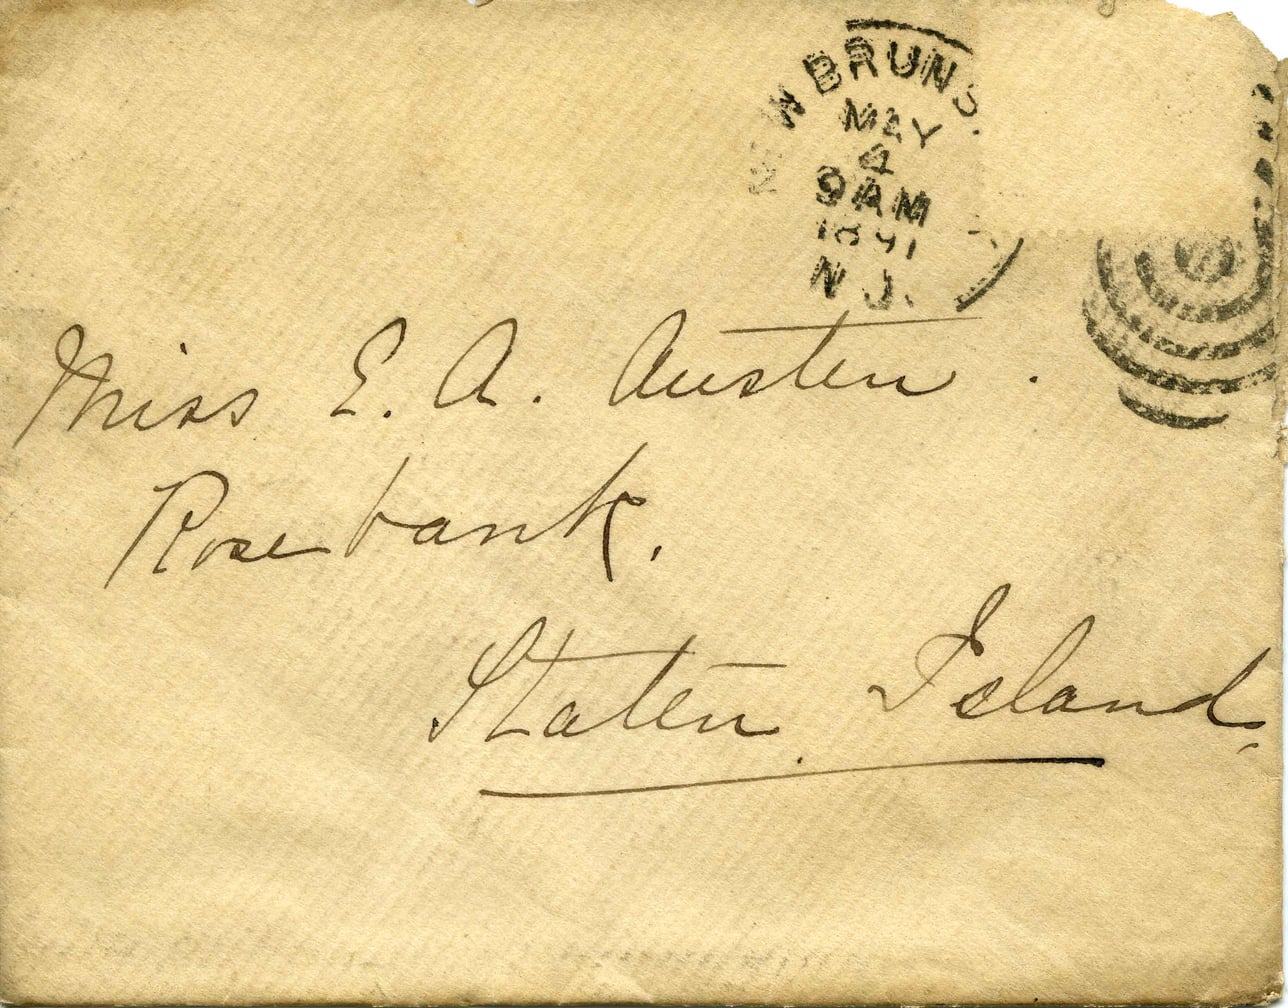 NEW BRUNS
MAY
4
9 AM
1891
N.J.
Miss E. A. Austen.
Rosebank,
Staten Island,